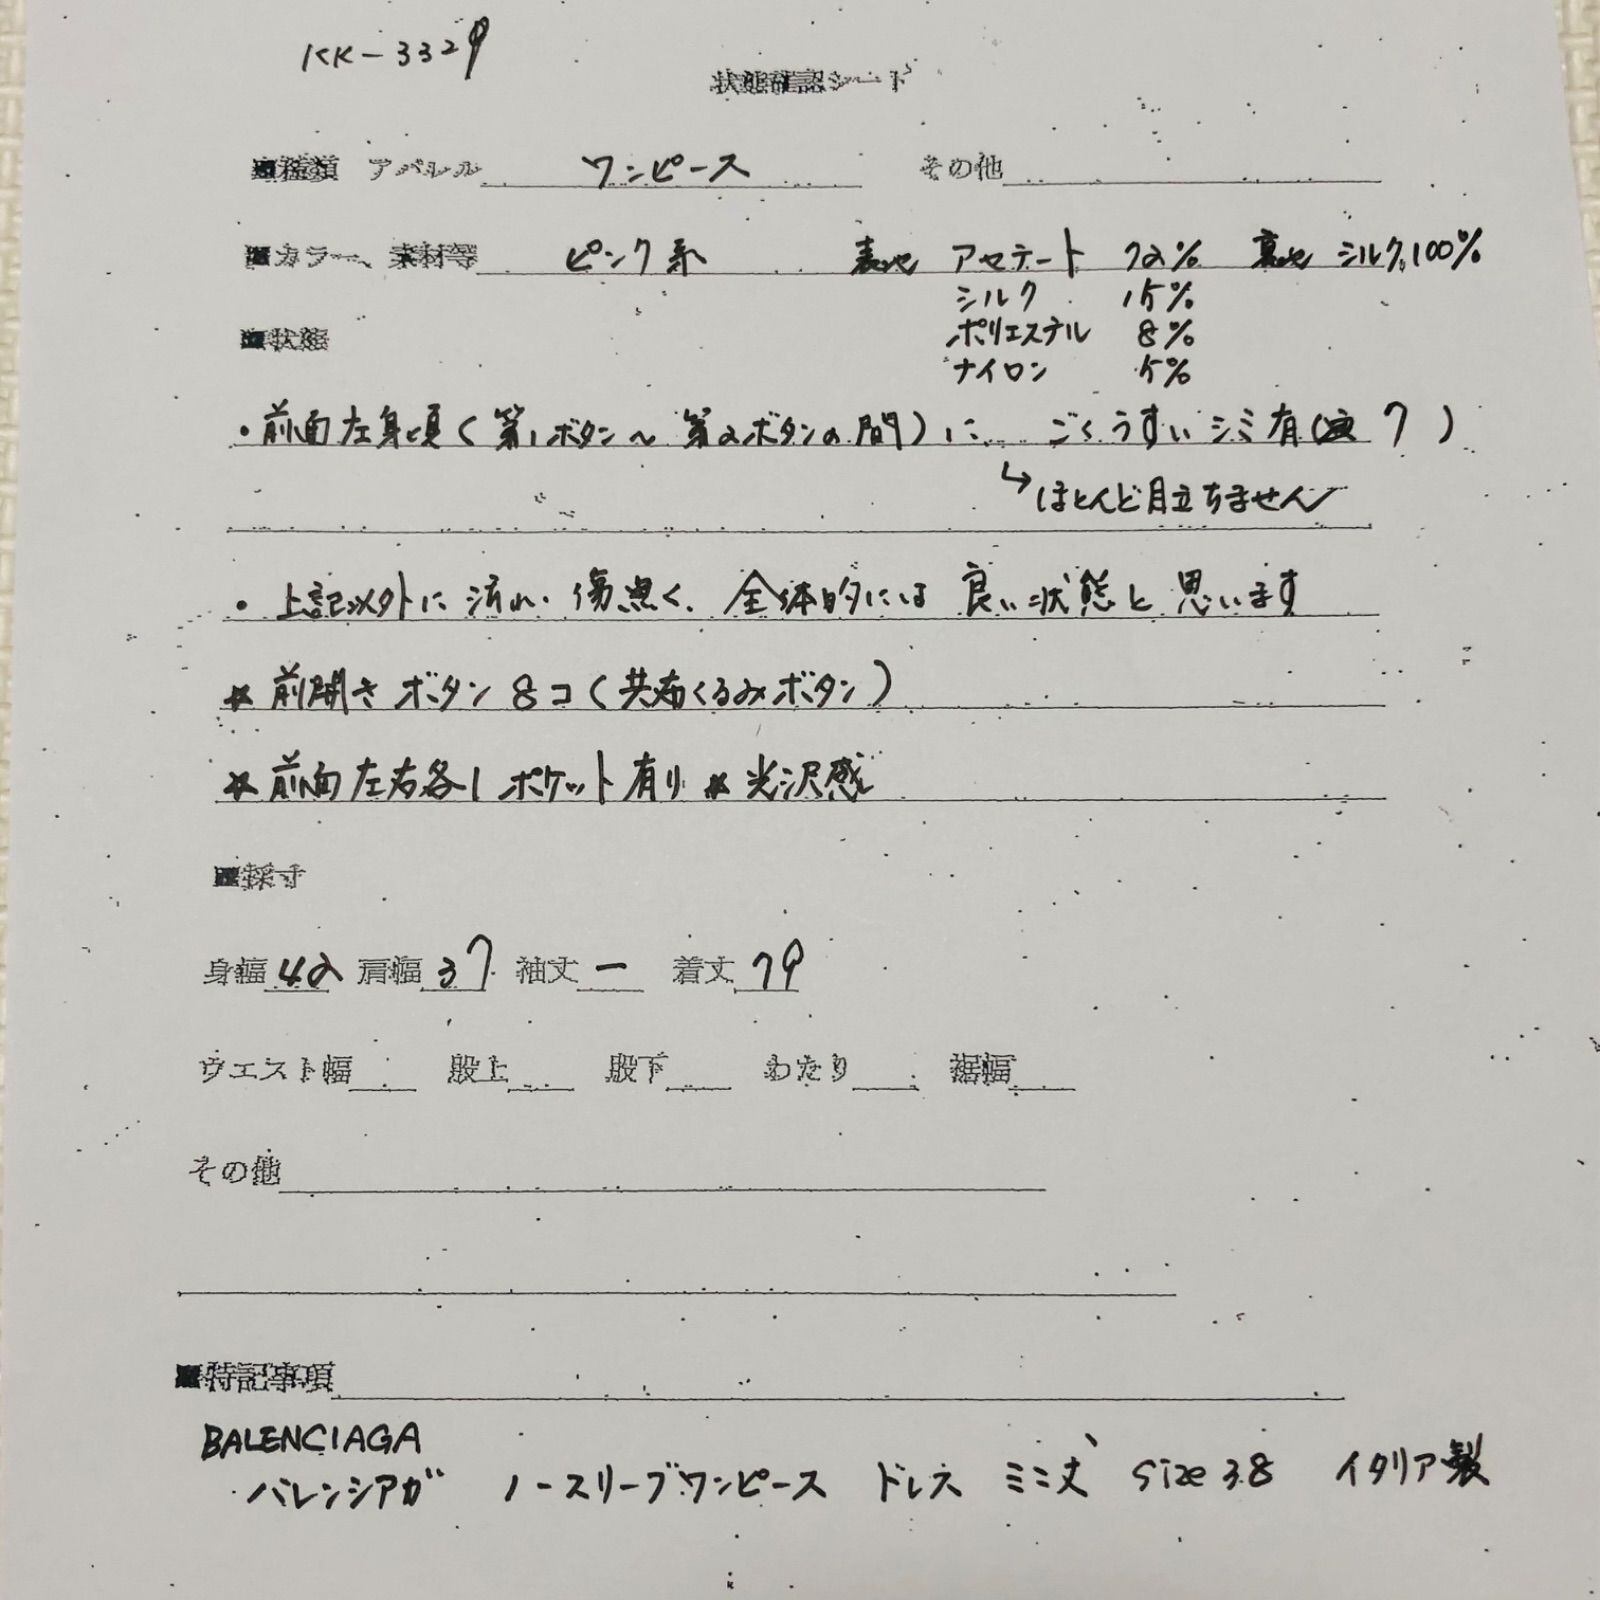 KK-3329
状態確認シート
■種類 アパレル ワンピース その他
■カラー、素材等 ピンク系 表地 アセテート 72% 裏地 シルク100%
シルク 15%
ポリエステル 8%
ナイロン 5%
■状態
・前面左身頃(第1ボタン〜第2ボタンの間)に ごくうすいシミ有(図7)
↳ほとんど目立ちません
・上記以外に汚れ・傷無く、全体的には良い状態と思います
* 前開きボタン8コ(共布くるみボタン)
* 前面左右各1ポケット有り * 光沢感
■採寸
身幅 42 肩幅 37 袖丈 ー 着丈 79
ウエスト幅 股上 股下 わたり 裾幅
その他
■特記事項
BALENCIAGA
バレンシアガ ノースリーブワンピース ドレス ミニ丈 size 38 イタリア製